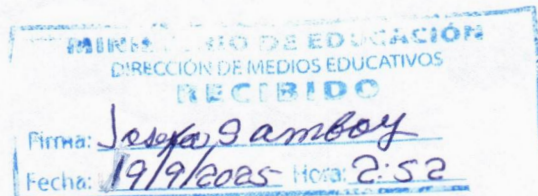 MINISTERIO DE EDUCACIÓN
DIRECCIÓN DE MEDIOS EDUCATIVOS
RECIBIDO
Firma: Josefa Samboy
Fecha: 19/9/2025 Hora: 2:52